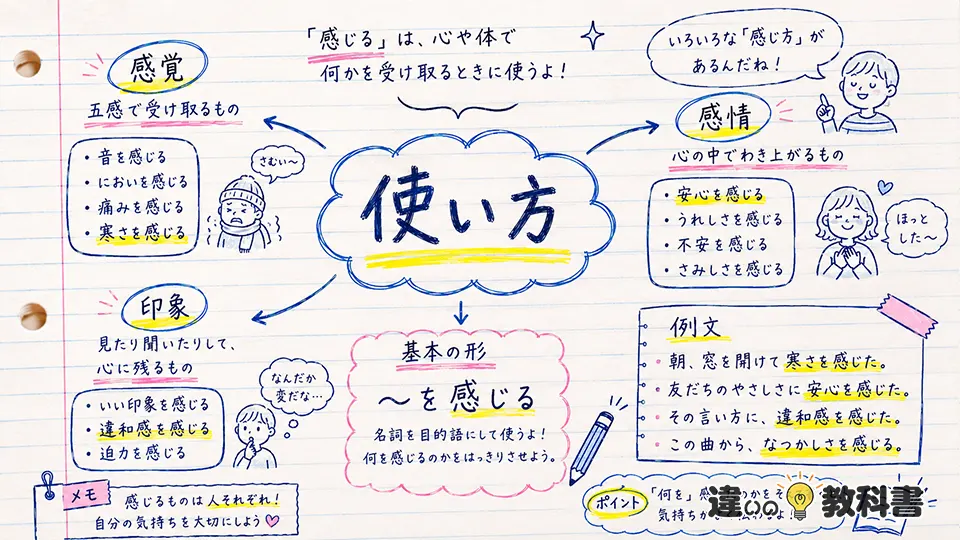 「感じる」は、心や体で
何かを受け取るときに使うよ！
いろいろな「感じ方」が
あるんだね！
感覚
五感で受け取るもの
・音を感じる
・においを感じる
・痛みを感じる
・寒さを感じる
さむい〜
使い方
感情
心の中でわき上がるもの
・安心を感じる
・うれしさを感じる
・不安を感じる
・さみしさを感じる
ほっと
した〜
印象
見たり聞いたりして、
心に残るもの
・いい印象を感じる
・違和感を感じる
・迫力を感じる
なんだか
変だな…
基本の形
〜を感じる
名詞を目的語にして使うよ！
何を感じるのかをはっきりさせよう。
例文
・朝、窓を開けて寒さを感じた。
・友だちのやさしさに安心を感じた。
・その言い方に、違和感を感じた。
・この曲から、なつかしさを感じる。
メモ
感じるものは人それぞれ！
自分の気持ちを大切にしよう♡
ポイント
「何を」感
気持ちが
違いの教科書